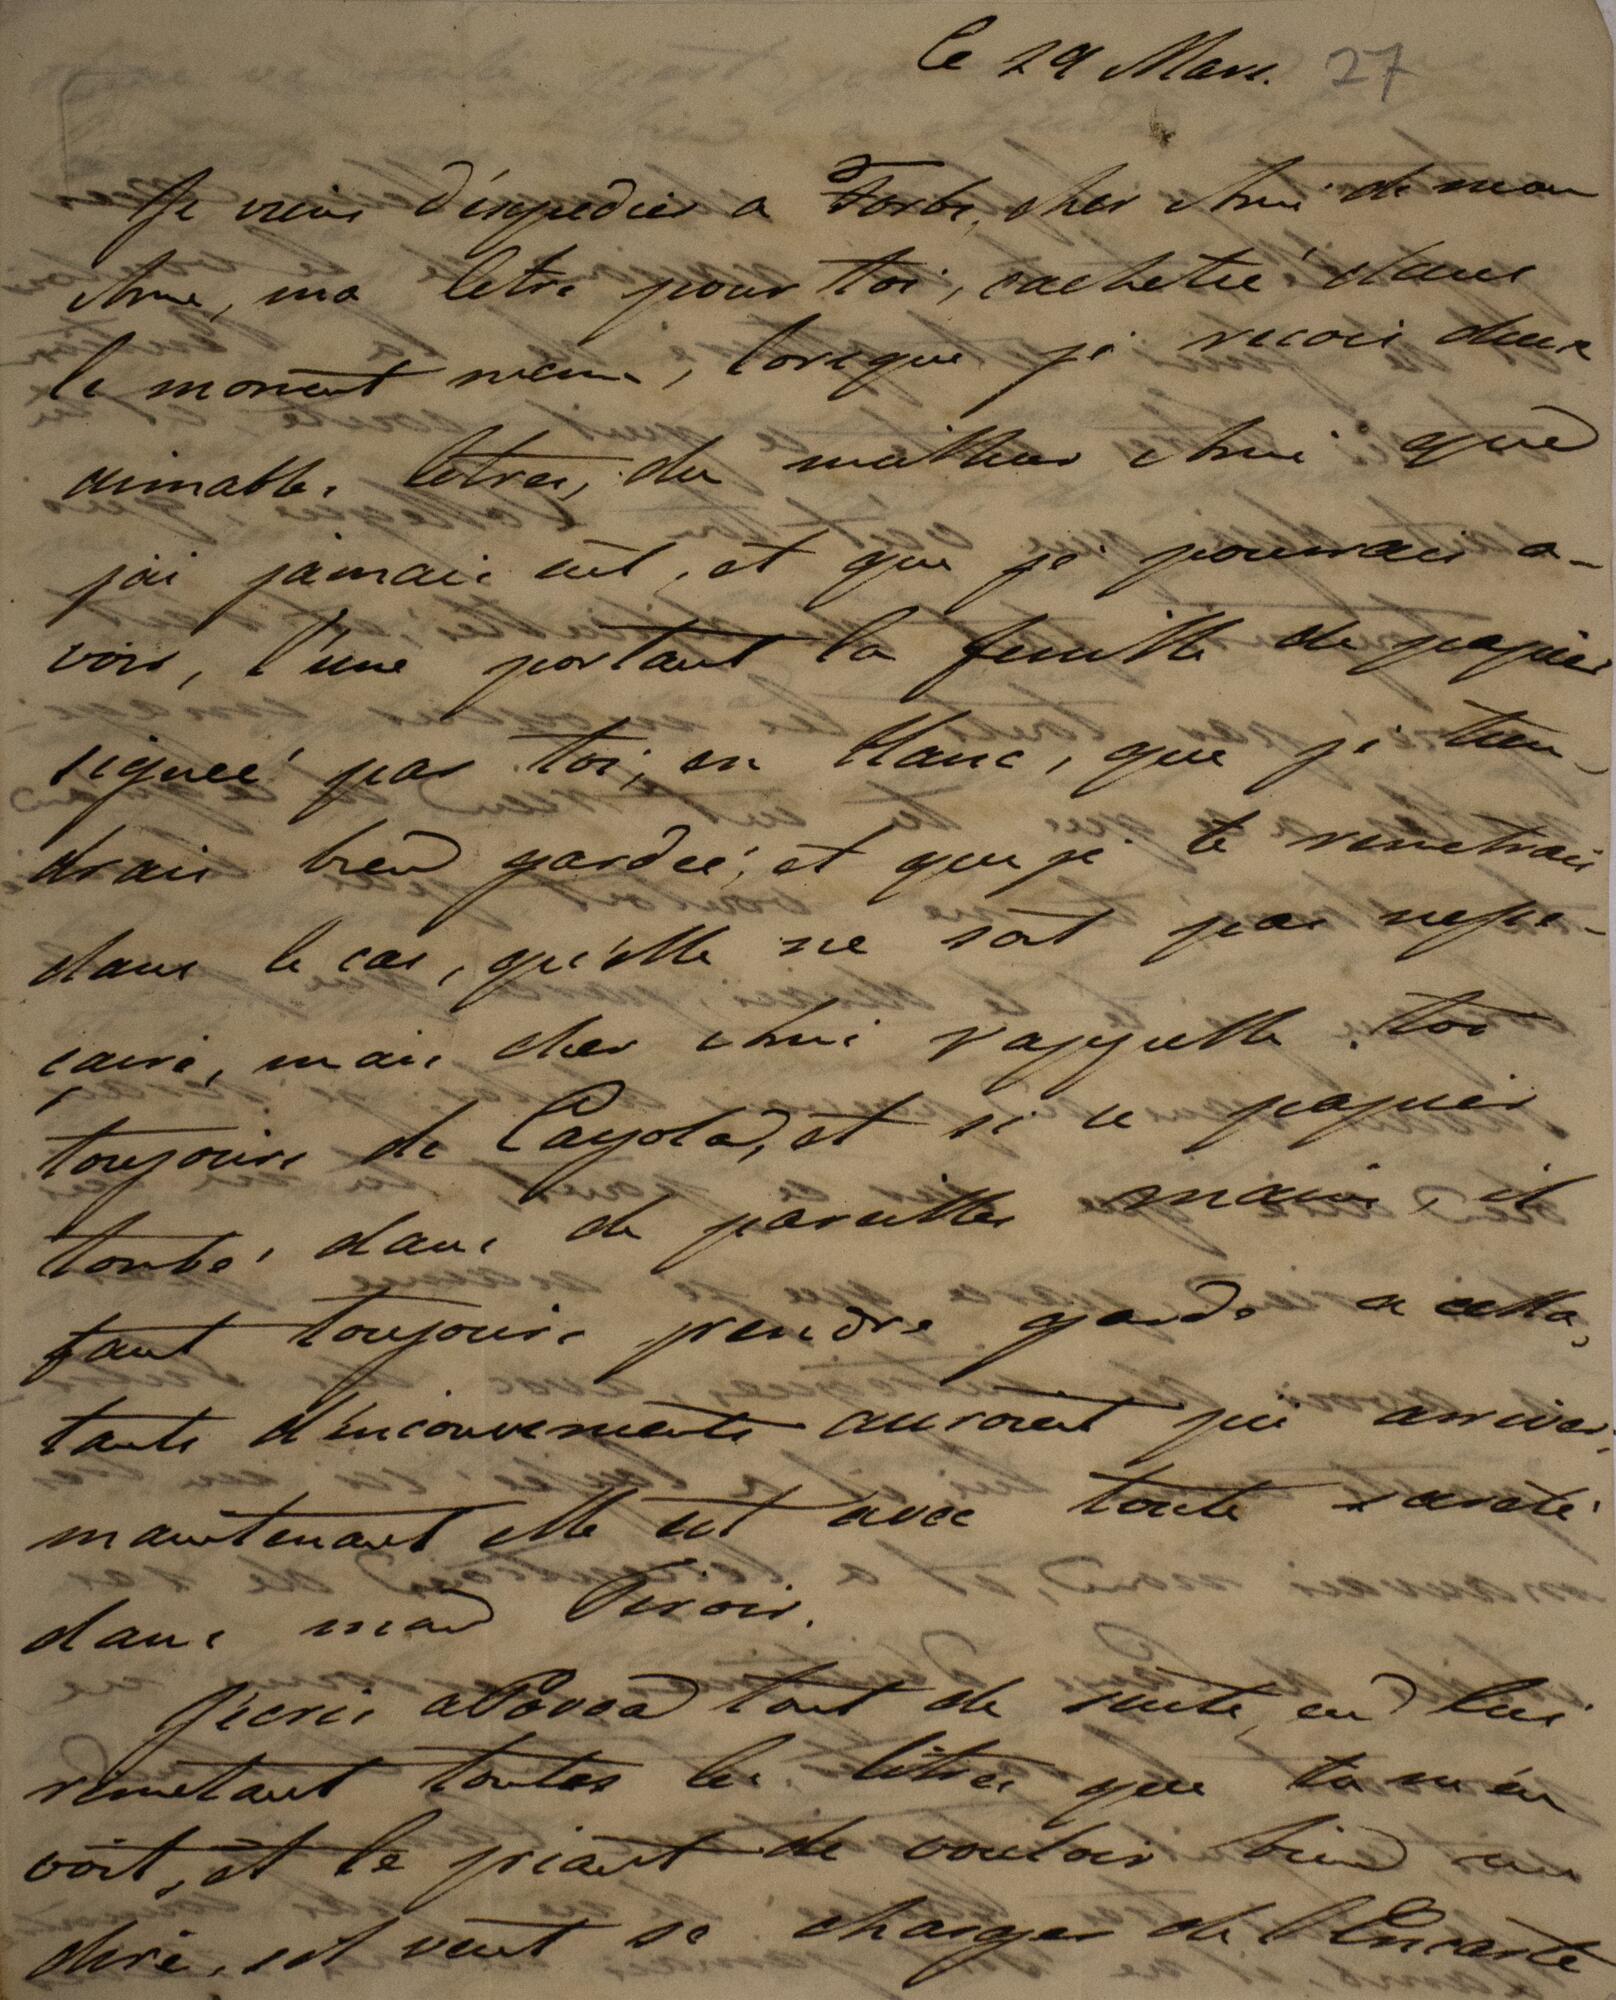 le 29 Mars. 27
Je viens d'éxpedier a Forbs, cher Ami de mon
Ame, ma letre pour toi, cachetée dans
le moment meme, lorsque je recois deux
aimables letres, du meilleur Ami que
jai jamais eût, et que je pourrais a-
voir, l'une portant la feuille de papier
signée par toi, en blanc, que je tien-
drais bien gardée, et que je te remetrais
dans le cas, qu'elle ne soit pas nesse-
çaire, mais cher Ami rappelle toi
toujours de Cayola, et si ce papier
tombe dans de pareilles mains, il
faut toujours prendre garde a cella,
tants d'inconvenients auroient pû arriver,
maintenant elle est avec toute sureté
dans mon Tiroir.
J'ecris a Povoa tout de suite, en lui
remetant toutes les letres que tu m'en
voit, et le priant de vouloir bien me
dire, s'il veut se charger de l'Encarte